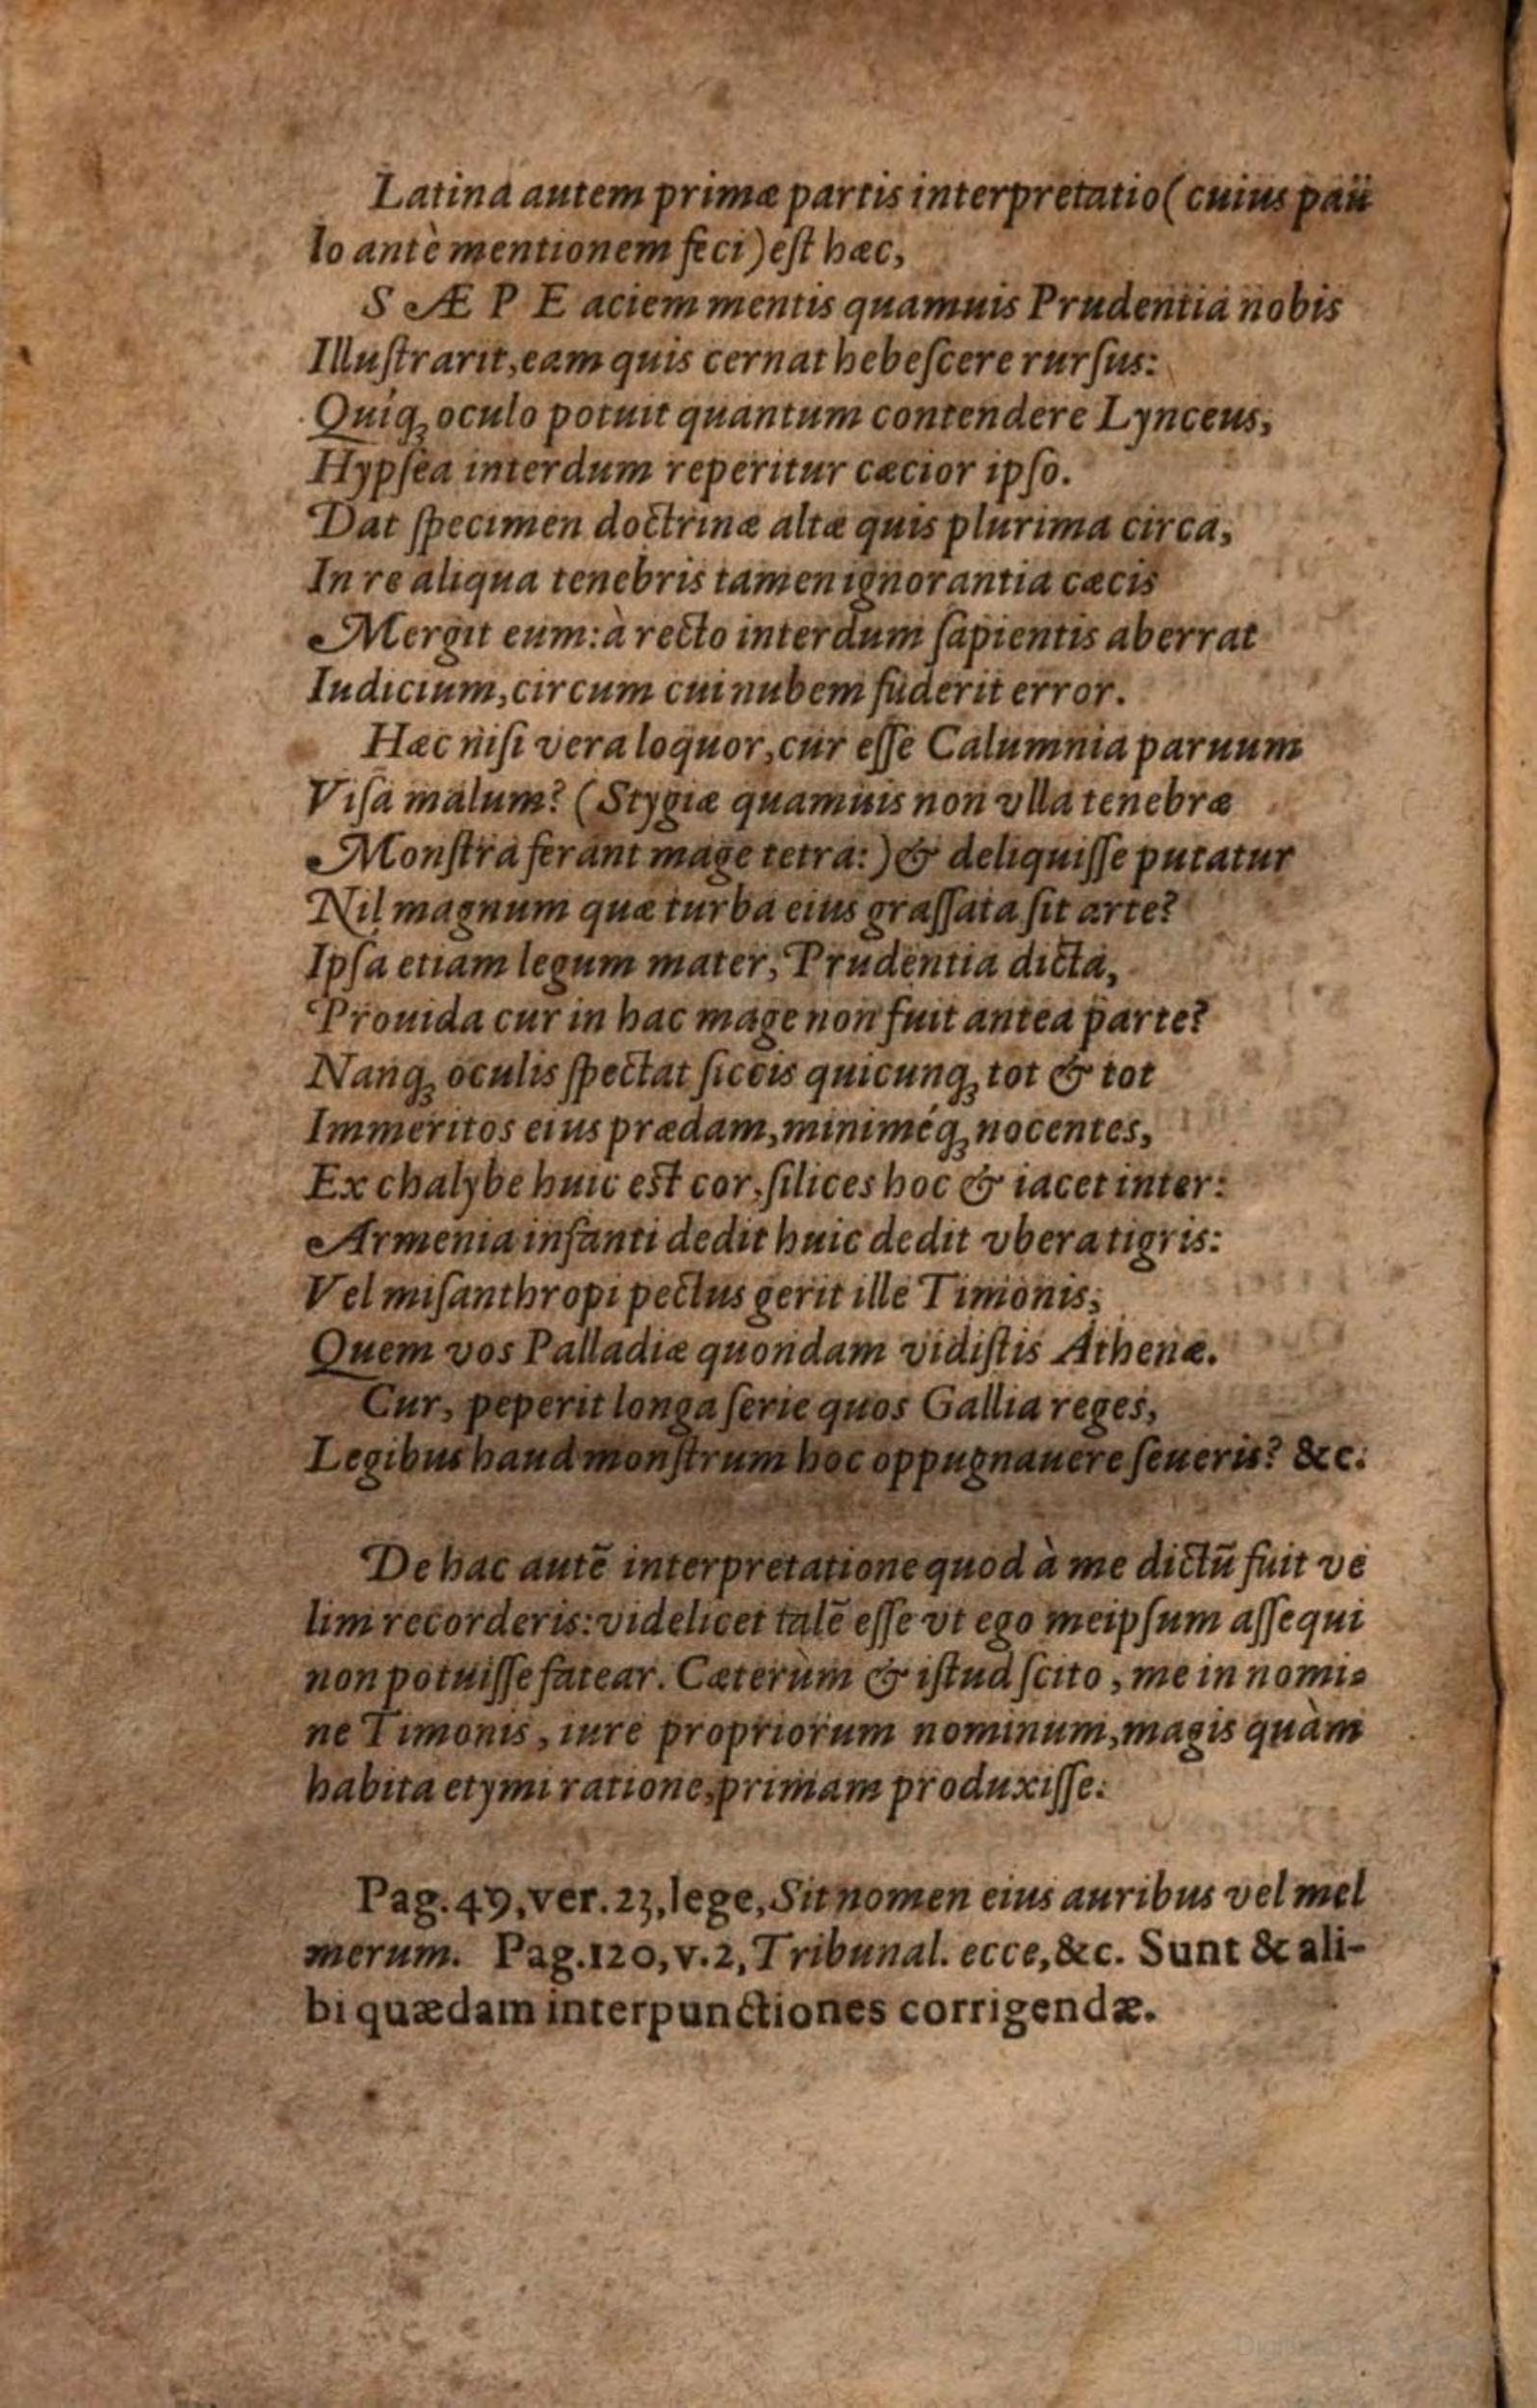 Latina autem primæ partis interpretatio (cuius pau
lo antè mentionem feci) est hæc,
SÆPE aciem mentis quamuis Prudentia nobis
Illuſtrarit, eam quis cernat hebeſcere rurſus:
Quiq; oculo potuit quantum contendere Lynceus,
Hypſea interdum reperitur cæcior ipſo.
Dat ſpecimen doctrinæ altæ quis plurima circa,
In re aliqua tenebris tamen ignorantia cæcis
Mergit eum: à recto interdum ſapientis aberrat
Iudicium, circum cui nubem fuderit error.
Hæc niſi vera loquor, cur eſſe Calumnia paruum
Viſa malum? (Stygiæ quamuis non vlla tenebræ
Monſtra ferant mage tetra:) & deliquiſſe putatur
Nil magnum quæ turba eius graſſata ſit arte?
Ipſa etiam legum mater, Prudentia dicta,
Prouida cur in hac mage non fuit antea parte?
Nanq; oculis ſpectat ſiccis quicunq; tot & tot
Immeritos eius prædam, miniméq; nocentes,
Ex chalybe huic est cor, ſilices hoc & iacet inter:
Armenia infanti dedit huic dedit vbera tigris:
Vel miſanthropi pectus gerit ille Timonis,
Quem vos Palladiæ quondam vidiſtis Athenæ.
Cur, peperit longa ſerie quos Gallia reges,
Legibus haud monſtrum hoc oppugnauere ſeueris? &c.
De hac autē interpretatione quod à me dictū fuit ve
lim recorderis: videlicet talē eſſe vt ego meipſum aſſequi
non potuiſſe fatear. Cæterùm & iſtud ſcito, me in nomi-
ne Timonis, iure propriorum nominum, magis quàm
habita etymi ratione, primam produxiſſe.
Pag. 49, ver. 23, lege, Sit nomen eius auribus vel mel
merum. Pag. 120, v. 2, Tribunal. ecce, &c. Sunt & ali-
bi quædam interpunctiones corrigendæ.